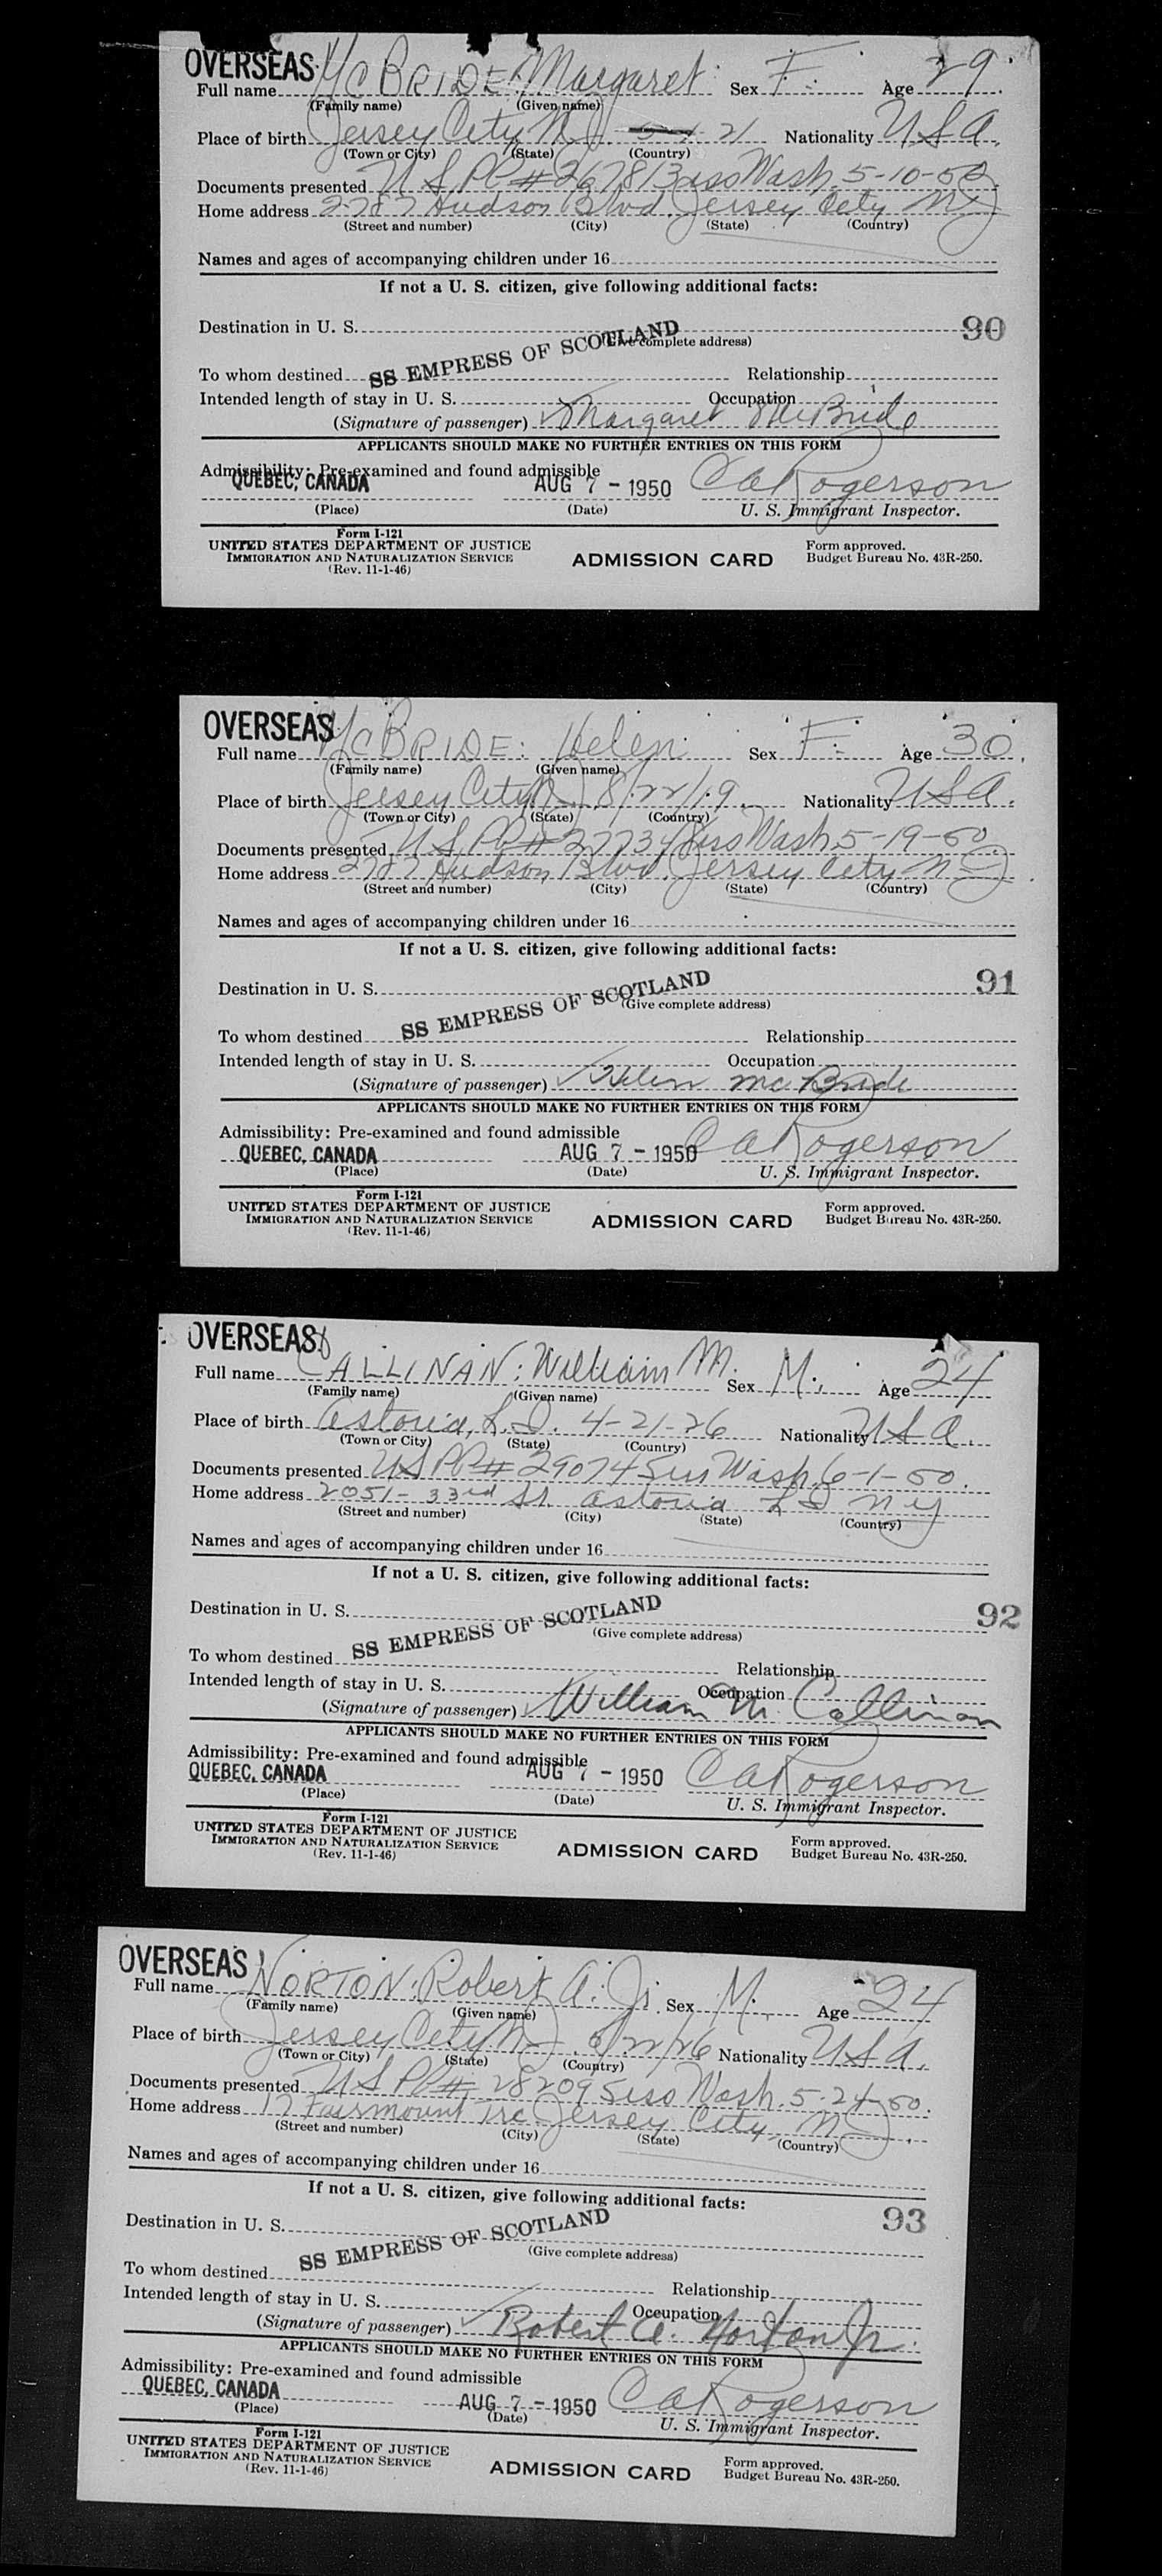 OVERSEAS
Full name McBRIDE: Margaret Sex F. Age 29.
(Family name) (Given name)
Place of birth Jersey City N.J. 21 Nationality USA.
(Town or City) (State) (Country)
Documents presented US PP# 267813 iss Wash. 5-10-50.
Home address 2787 Hudson Blvd. Jersey City NJ
(Street and number) (City) (State) (Country)
Names and ages of accompanying children under 16
If not a U. S. citizen, give following additional facts:
Destination in U. S. 90
(Give complete address)
SS EMPRESS OF SCOTLAND
To whom destined Relationship
Intended length of stay in U. S. Occupation
(Signature of passenger) Margaret McBride
APPLICANTS SHOULD MAKE NO FURTHER ENTRIES ON THIS FORM
Admissibility: Pre-examined and found admissible
QUEBEC, CANADA AUG 7 - 1950 CA Rogerson
(Place) (Date) U. S. Immigrant Inspector.
Form I-121
UNITED STATES DEPARTMENT OF JUSTICE
IMMIGRATION AND NATURALIZATION SERVICE
(Rev. 11-1-46)
ADMISSION CARD
Form approved.
Budget Bureau No. 43R-250.
OVERSEAS
Full name McBRIDE: Helen Sex F. Age 30.
(Family name) (Given name)
Place of birth Jersey City NJ 8/22/19. Nationality USA.
(Town or City) (State) (Country)
Documents presented US PP# iss Wash 5-19-50.
Home address 2787 Hudson Blvd. Jersey City NJ.
(Street and number) (City) (State) (Country)
Names and ages of accompanying children under 16
If not a U. S. citizen, give following additional facts:
Destination in U. S. 91
(Give complete address)
SS EMPRESS OF SCOTLAND
To whom destined Relationship
Intended length of stay in U. S. Occupation
(Signature of passenger) Helen McBride
APPLICANTS SHOULD MAKE NO FURTHER ENTRIES ON THIS FORM
Admissibility: Pre-examined and found admissible
QUEBEC, CANADA AUG 7 - 1950 CA Rogerson
(Place) (Date) U. S. Immigrant Inspector.
Form I-121
UNITED STATES DEPARTMENT OF JUSTICE
IMMIGRATION AND NATURALIZATION SERVICE
(Rev. 11-1-46)
ADMISSION CARD
Form approved.
Budget Bureau No. 43R-250.
OVERSEAS
Full name CALLINAN: William M. Sex M. Age 24
(Family name) (Given name)
Place of birth Astoria, L.I. 4-21-26 Nationality USA.
(Town or City) (State) (Country)
Documents presented US PP# 290745 iss Wash. 6-1-50.
Home address 2051-33rd St. Astoria L I N Y
(Street and number) (City) (State) (Country)
Names and ages of accompanying children under 16
If not a U. S. citizen, give following additional facts:
Destination in U. S. 92
(Give complete address)
SS EMPRESS OF SCOTLAND
To whom destined Relationship
Intended length of stay in U. S. Occupation
(Signature of passenger) William M. Callinan
APPLICANTS SHOULD MAKE NO FURTHER ENTRIES ON THIS FORM
Admissibility: Pre-examined and found admissible
QUEBEC, CANADA AUG 7 - 1950 CA Rogerson
(Place) (Date) U. S. Immigrant Inspector.
Form I-121
UNITED STATES DEPARTMENT OF JUSTICE
IMMIGRATION AND NATURALIZATION SERVICE
(Rev. 11-1-46)
ADMISSION CARD
Form approved.
Budget Bureau No. 43R-250.
OVERSEAS
Full name NORTON: Robert A. Jr. Sex M. Age 24
(Family name) (Given name)
Place of birth Jersey City NJ. Nationality USA.
(Town or City) (State) (Country)
Documents presented US PP# 282095 iss Wash. 5-24-50.
Home address 17 Fairmount Trc Jersey City, NJ.
(Street and number) (City) (State) (Country)
Names and ages of accompanying children under 16
If not a U. S. citizen, give following additional facts:
Destination in U. S. 93
(Give complete address)
SS EMPRESS OF SCOTLAND
To whom destined Relationship
Intended length of stay in U. S. Occupation
(Signature of passenger) Robert A. Norton Jr.
APPLICANTS SHOULD MAKE NO FURTHER ENTRIES ON THIS FORM
Admissibility: Pre-examined and found admissible
QUEBEC, CANADA AUG 7 - 1950 CA Rogerson
(Place) (Date) U. S. Immigrant Inspector.
Form I-121
UNITED STATES DEPARTMENT OF JUSTICE
IMMIGRATION AND NATURALIZATION SERVICE
(Rev. 11-1-46)
ADMISSION CARD
Form approved.
Budget Bureau No. 43R-250.